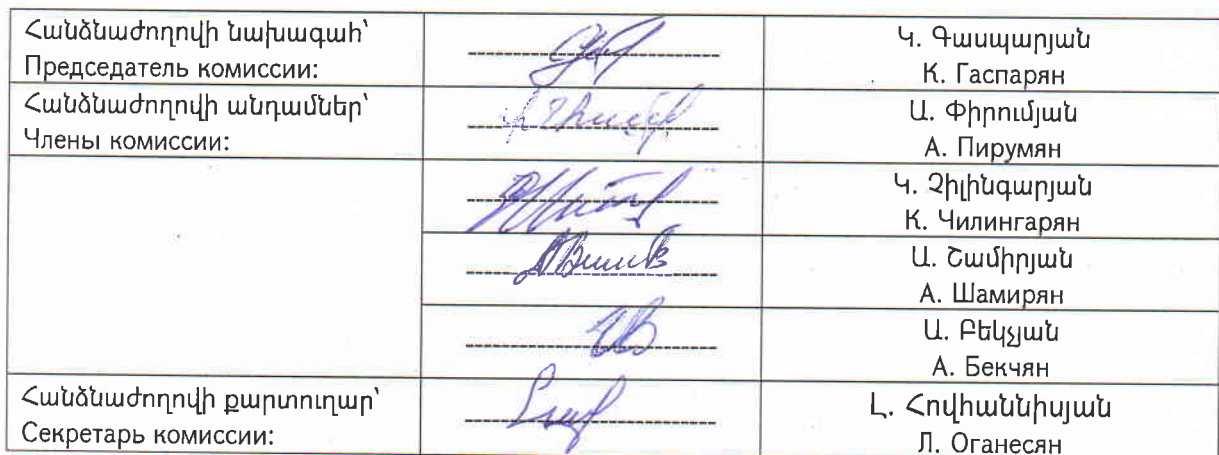 Հանձնաժողովի նախագահ՝
Председатель комиссии:
Կ. Գասպարյան
К. Гаспарян
Հանձնաժողովի անդամներ՝
Члены комиссии:
Ա. Փիրումյան
А. Пирумян
Կ. Չիլինգարյան
К. Чилингарян
Ա. Շամիրյան
А. Шамирян
Ա. Բեկչյան
А. Бекчян
Հանձնաժողովի քարտուղար՝
Секретарь комиссии:
Լ. Հովհաննիսյան
Л. Оганесян